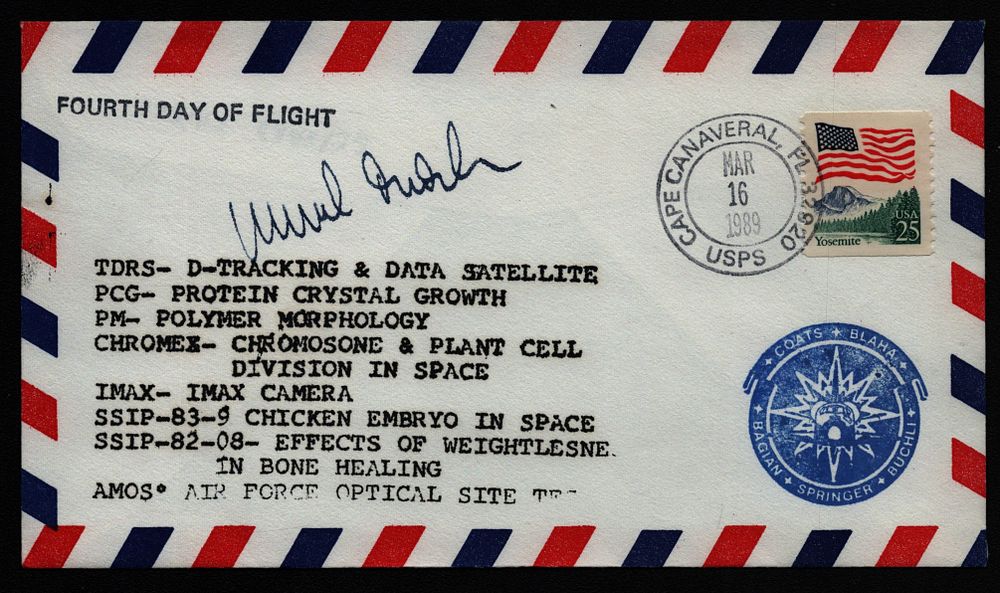 FOURTH DAY OF FLIGHT
CAPE CANAVERAL, FL 32920
MAR
16
1989
USPS
USA
25
Yosemite
TDRS- D-TRACKING & DATA SATELLITE
PCG- PROTEIN CRYSTAL GROWTH
PM- POLYMER MORPHOLOGY
CHROMEX- CHROMOSONE & PLANT CELL
DIVISION IN SPACE
IMAX- IMAX CAMERA
SSIP-83-9 CHICKEN EMBRYO IN SPACE
SSIP-82-08- EFFECTS OF WEIGHTLESNE
IN BONE HEALING
AMOS° AIR FORCE OPTICAL SITE
COATS BLAHA
BAGIAN SPRINGER BUCHLI